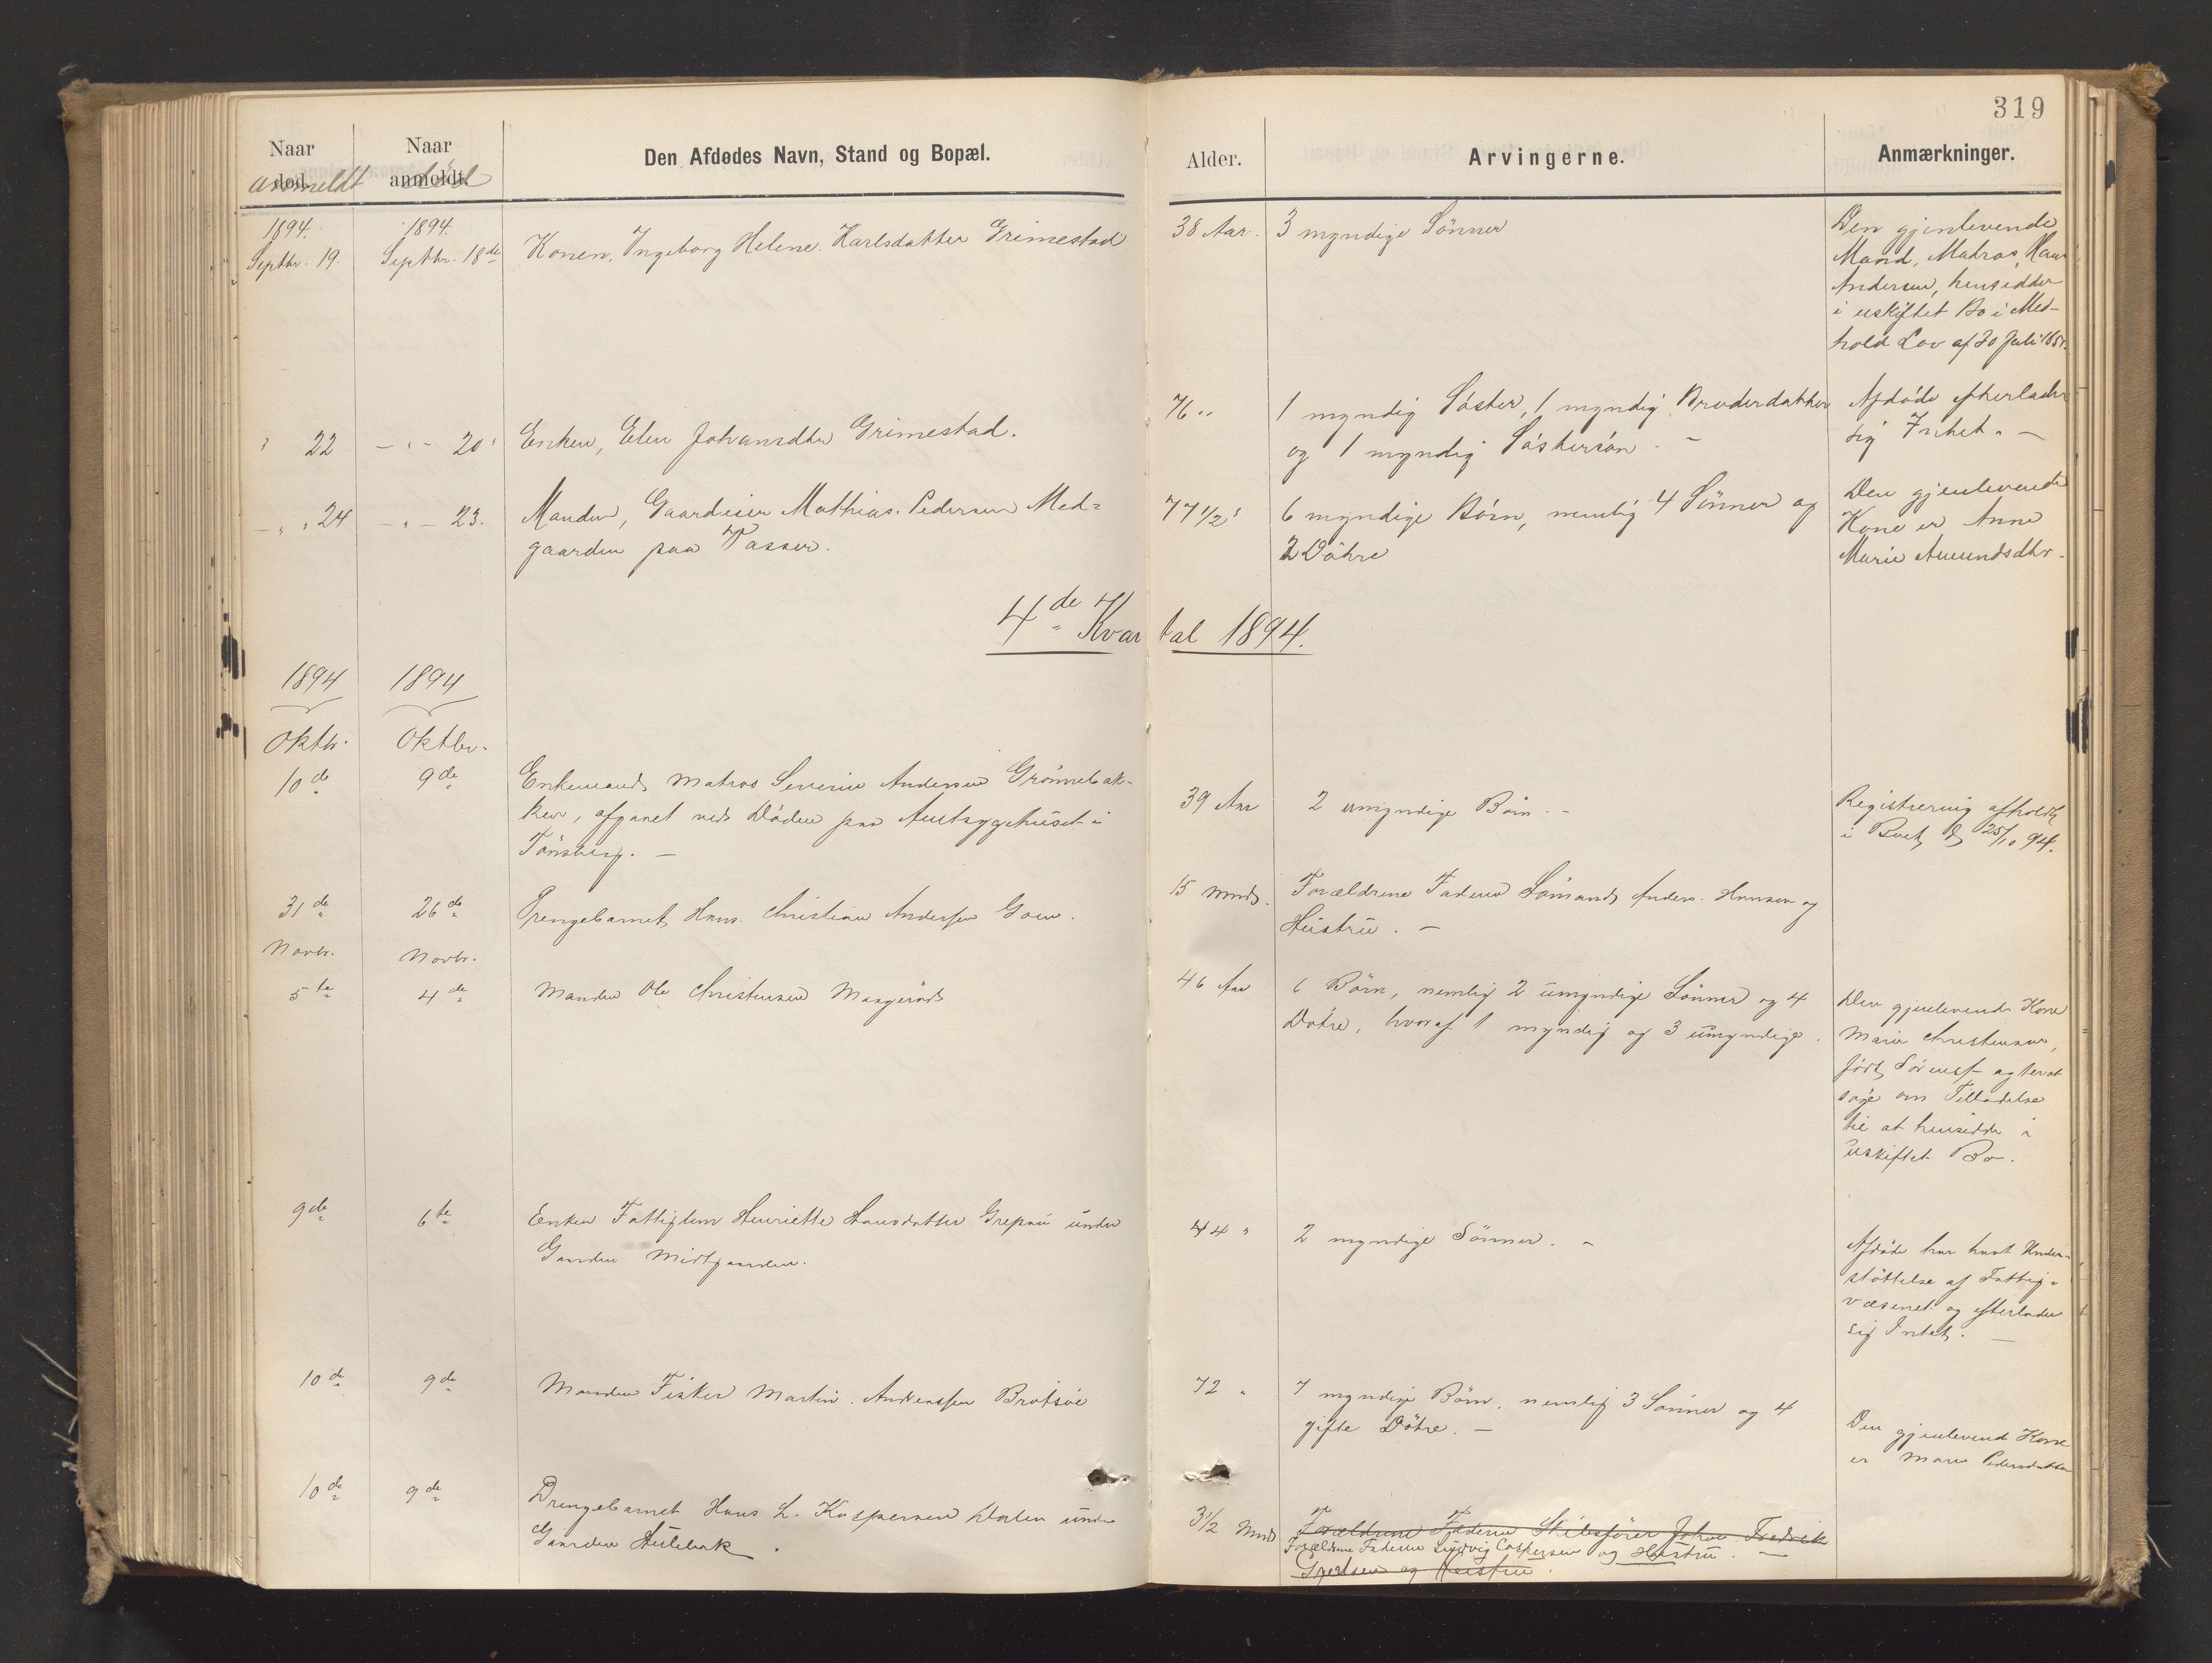 319
Naar død. anmeldt
Naar anmeldt død
Den Afdødes Navn, Stand og Bopæl.
Alder.
Arvingerne.
Anmærkninger.
1894. Septbr. 19.
1894. Septbr. 18de
Konen, Ingeborg Helene Karlsdatter Grimestad
38 Aar.
3 myndige Sønner
Den gjenlevende
Mand, Matros, Hans
Andersen, hensidder
i uskiftet Bo i Med-
hold Lov af 30 Juli 1851.
" 22
- " - 20"
Enken, Elen Johansdtr Grimestad.
76 "
1 myndig Søster, 1 myndig Broderdatter
og 1 myndig Søstersøn -
Afdøde efterlader
sig Intet. -
- " " 24
- " - 23.
Manden, Gaardeier Mathias Pedersen Med=
gaarden paa Tasser.
77 1/2 "
6 myndige Børn, nemlig 4 Sønner og
2 Døtre
Den gjenlevende
Kone er Anne
Marie Amundsdtr.
4de Kvartal 1894.
1894
1894
Oktbr.
Oktbr.
10de
9de
Enkemand Matros Severin Andersen Grønnebak-
ken, afgaaet ved Døden paa Amtsygehuset i
Tønsberg. -
39 Aar
2 umyndige Børn. -
Registrering afholdt
i Boet d 25/10 94.
31de
26de
Drengebarnet Hans Christian Andersen Goen.
15 Mnds.
Forældrene Faderen Sømand Anders Hansen og
Hustru. -
Novbr.
Novbr.
5te
4de
Manden Ole Christensen Maagerød
46 Aar
6 Børn, nemlig 2 umyndige Sønner og 4
Døtre, hvoraf 1 myndig og 3 umyndige.
Den gjenlevende Kone
Marie Christensen,
født Sørensf agter at
søge om Tilladelse
til at hensidde i
uskiftet Bo.
9de
6te
Enken Fattiglem Henriette Hansdatter Grepan under
Gaarden Midtgaarden.
44 "
2 myndige Sønner. -
Afdøde har havt Under-
støttelse af Fattig-
væsenet og efterlader
sig Intet. -
10de
9de
Manden Fisker Martin Andreassen Brøtsøe
72 "
7 myndige Børn, nemlig 3 Sønner og 4
gifte Døtre. -
Den gjenlevende Kone
er Maren Pedersdatter
10de
9de
Drengebarnet Hans L. Kaspersen Dalen under
Gaarden Hulebak.
3 1/2 Mnds
Forældrene Faderen Skibsfører Johan Fredrik
Forældrene Faderen Ludvig Caspersen og Hustru. -
og Hustru.